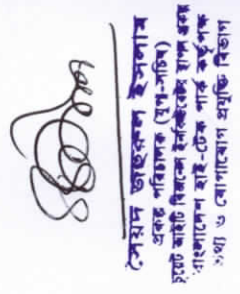 (সৈয়দ জহুরুল ইসলাম)
প্রকল্প পরিচালক (যুগ্ম-সচিব)
চুয়েট আইটি বিজনেস ইনকিউবেটর স্থাপন প্রকল্প
বাংলাদেশ হাই-টেক পার্ক কর্তৃপক্ষ
তথ্য ও যোগাযোগ প্রযুক্তি বিভাগ